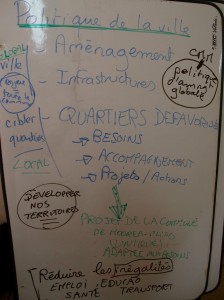 Politique de la ville
- Aménagement
ville
- Infrastructures
politique
d'aménag
globale
cibler
quartiers
QUARTIERS DEFAVORISES
→ BESOINS
→ ACCOMPAGNEMENT
→ Projets / Actions
LOCAL
DÉVELOPPER
NOS
TERRITOIRES
PROJET DE LA COMMUNE
ADAPTÉ AU
Réduire les inégalités
EMPLOI. EDUCAO
SANTÉ TRANSPORT